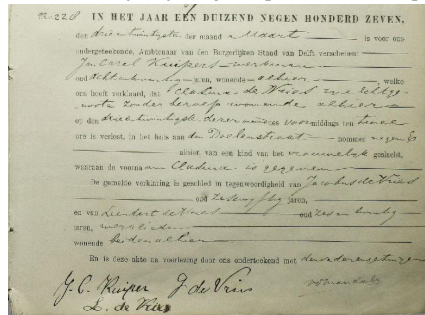 No. 228 IN HET JAAR EEN DUIZEND NEGEN HONDERD ZEVEN,
den drie en twintigste der maand Maart is voor ons
ondergeteekende, Ambtenaar van den Burgerlijken Stand van Delft verschenen:
Jan Carel Kuipers werkman
oud achtentwintig jaren, wonende alhier, welke
ons heeft verklaard, dat Clasina de Vries zijne echtge-
noote zonder beroep wonende alhier
op den drie en twintigste dezer maand des voormiddags ten twee
ure is verlost, in het huis aan den Doelenstraat nommer negen
alhier, van een kind van het vrouwelijk geslacht,
waaraan de voornaam Clasina is gegeven
De gemelde verklaring is geschied in tegenwoordigheid van Jacobus de Vries
oud zes en vijftig jaren,
en van Leendert de Vries oud zes en twintig
jaren, werklieden
wonende beiden alhier
En is deze akte na voorlezing door ons onderteekend met den vader en getuigen
J. C. Kuiper J de Vries
L. de Vries